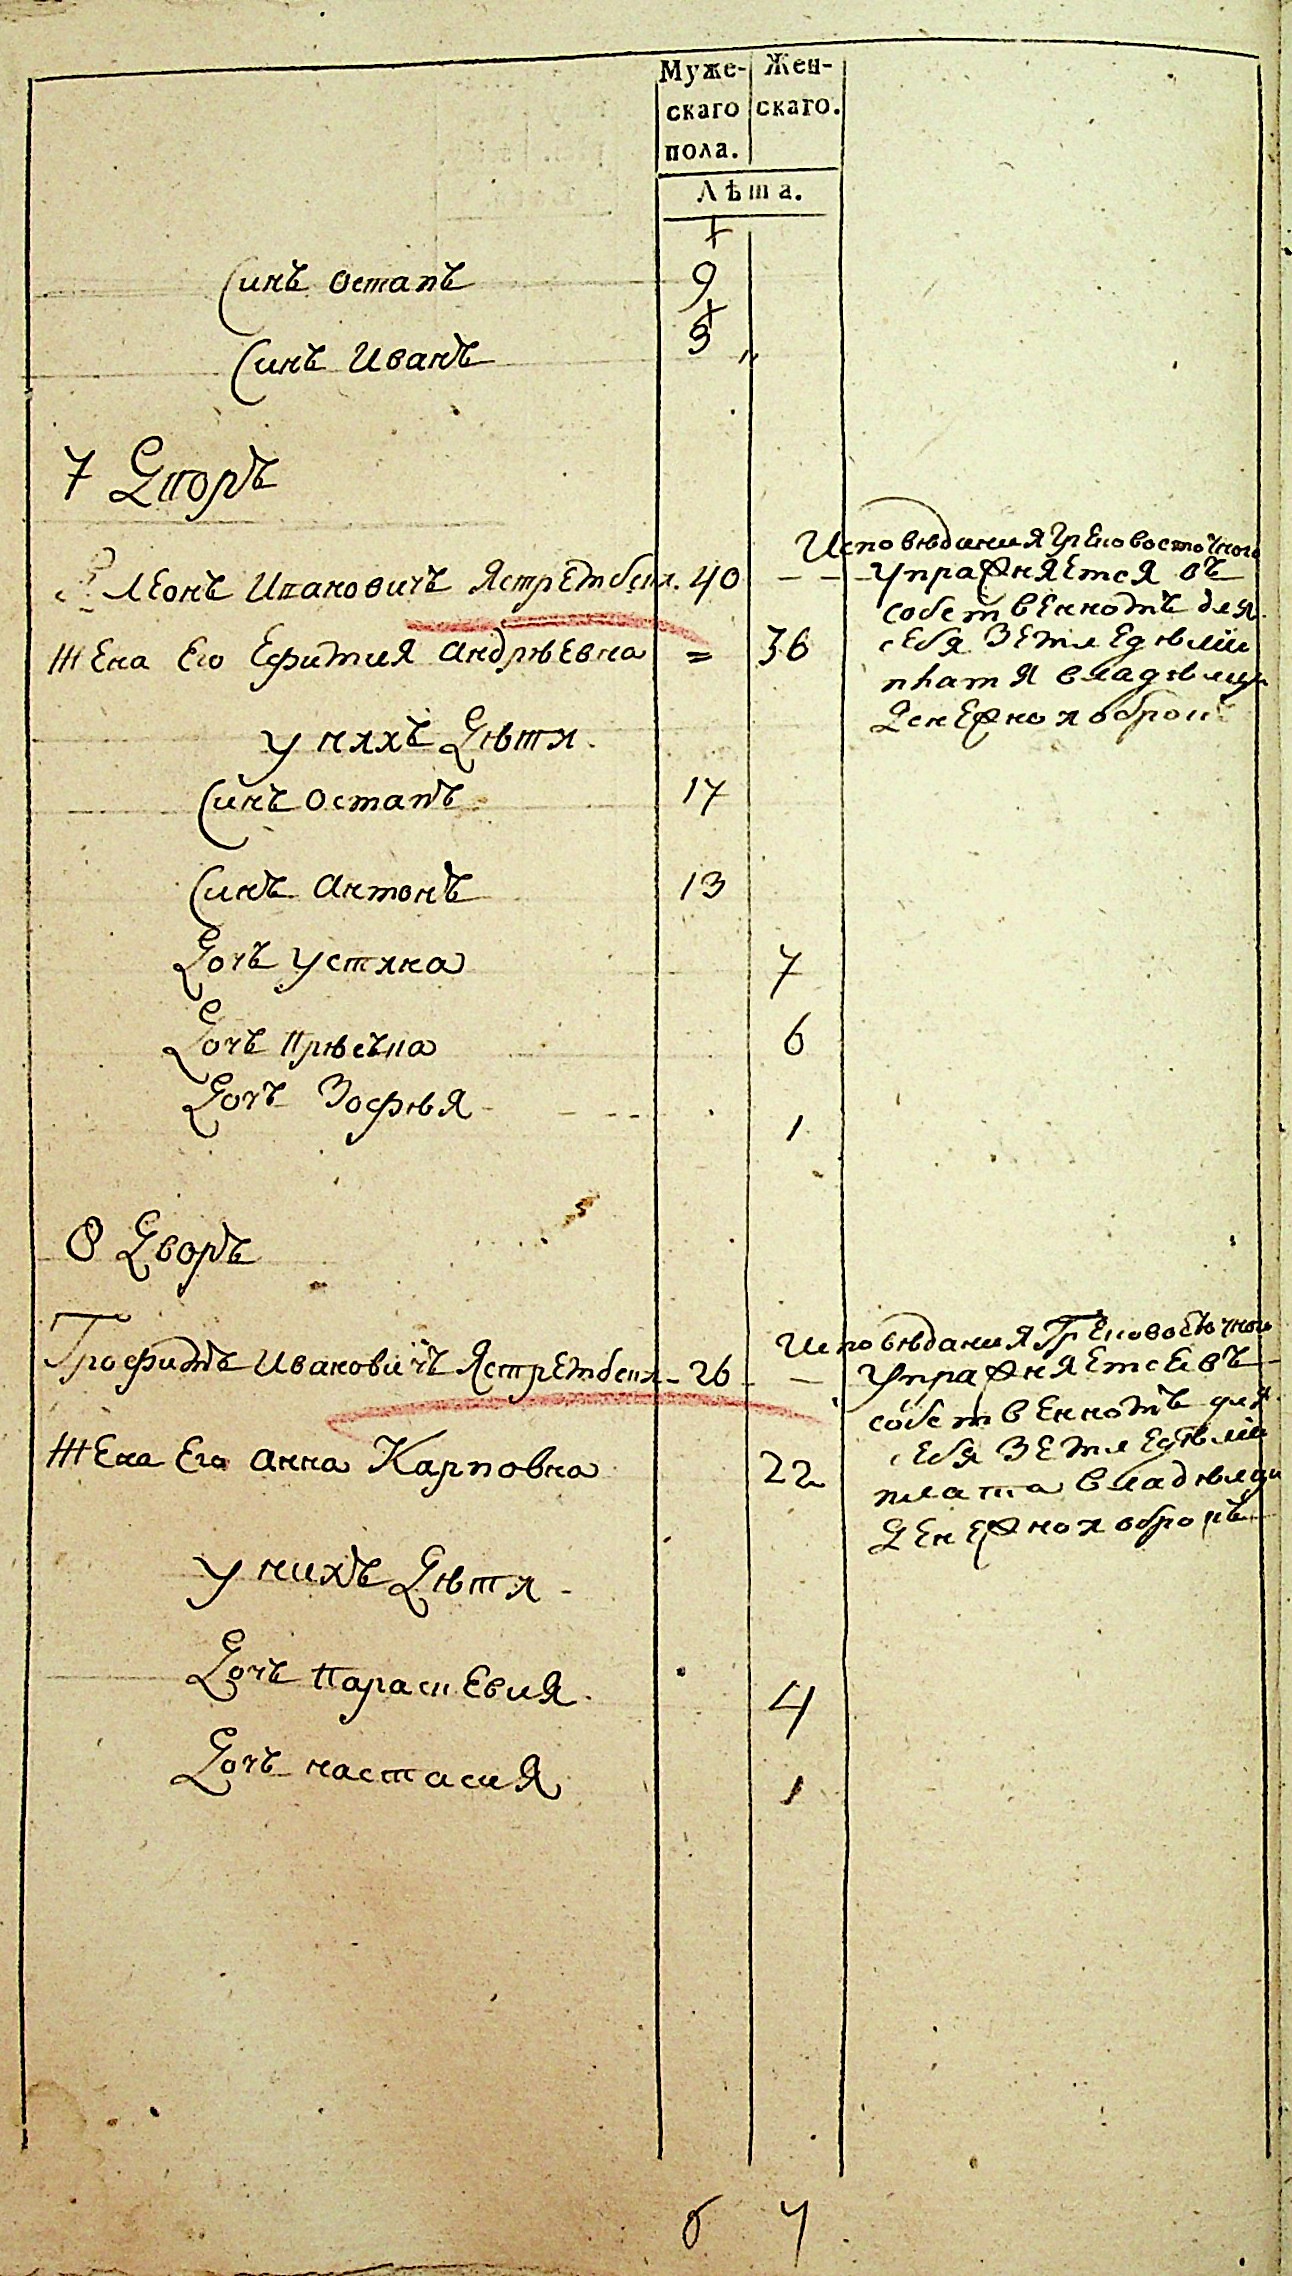 Муже-
скаго
пола.
Жен-
скаго.
Лѣта.
Синъ Остапъ 9
Синъ Иванъ 3
7 Дворъ
Леонъ Ивановичъ Ястрембски. 40
Исповѣдания Грековосточного
упражняется въ
собственномъ для
себя Земледѣлии
плата владѣльцу
Денежной оброкъ
Жена Его Ефимия Андрѣевна = 36
у нихъ Дѣти.
Синъ Остапъ 17
Синъ Антонъ 13
Дочъ Устина 7
Дочъ 6
Дочъ Зофѣя 1
8 Дворъ
Трофимъ Ивановичъ Ястрембски - 26
Исповѣдания Грековосточного
Упражняется въ
собственномъ для
себя Земледѣлии
плата владѣлцу
Денежной оброкъ
Жена Его Анна Карповна 22
у нихъ Дѣти -
Дочъ Парасшевия. 4
Дочъ Настасия 1